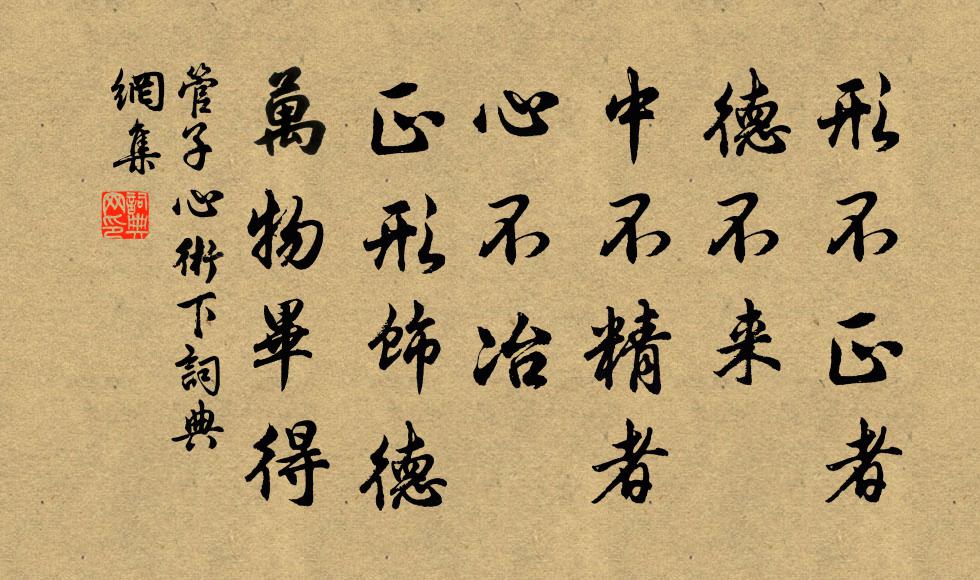 形不正者
德不来
中不精者
心不冶
正形飾德
萬物畢得
管子心術下詞典
網集
詞典
网印